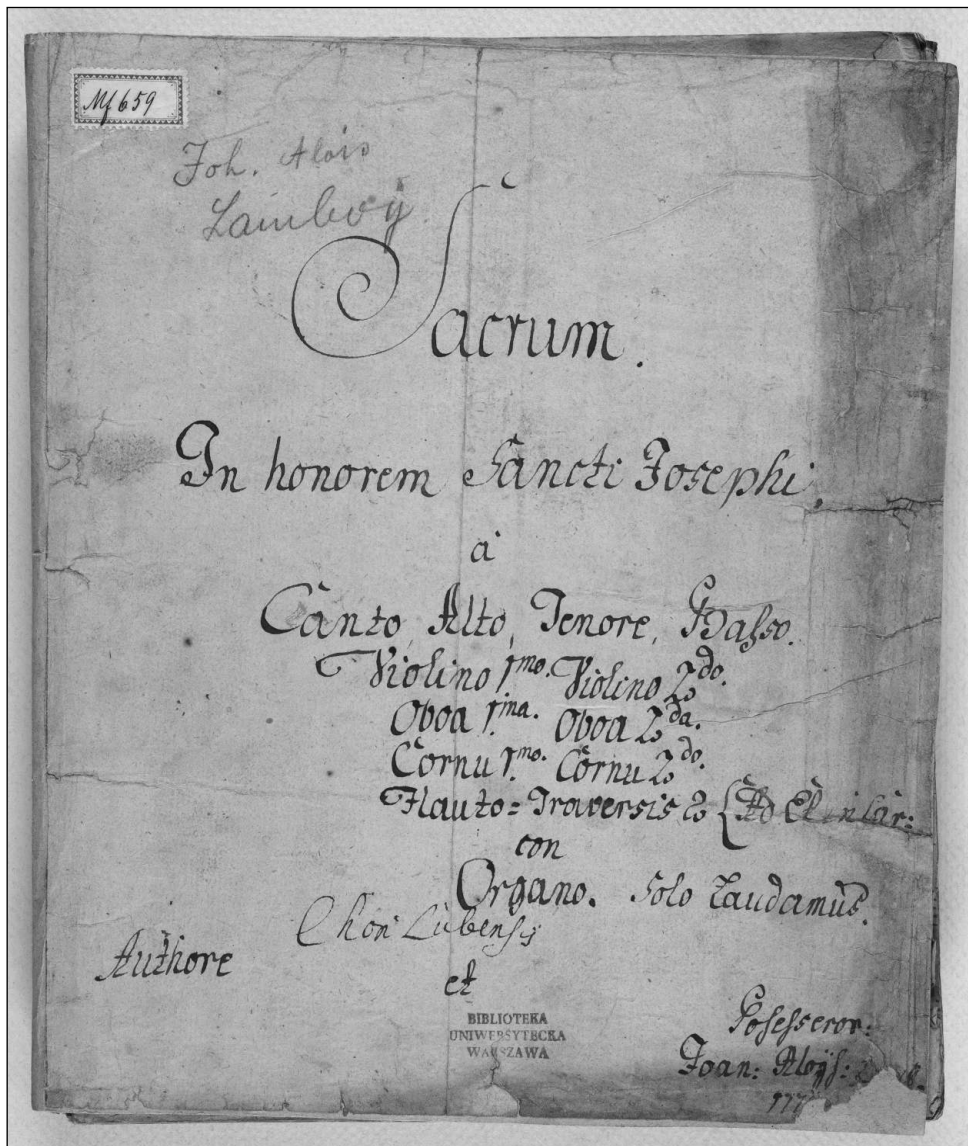 Mf 659
Joh. Alois
Lamboÿ
Sacrum.
In honorem Sancti Josephi.
a
Canto, Alto, Tenore, Basso.
Violino 1mo. Violino 2do.
Oboa 1ma. Oboa 2da.
Cornu 1mo. Cornu 2do.
Flauto = Traversis 2 Ad Et incar:
con
Organo. Solo Laudamus.
Chori Lubensis
Authore
et
BIBLIOTEKA
UNIWERSYTECKA
WARSZAWA
Posesseror:
Joan: Aloÿs:
177